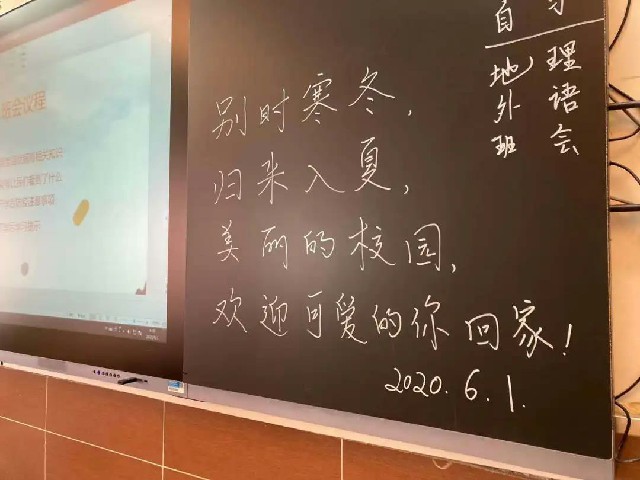 自
地理
外语
班会
别时寒冬，
归来入夏，
美丽的校园，
欢迎可爱的你回家！
2020.6.1.
会议程